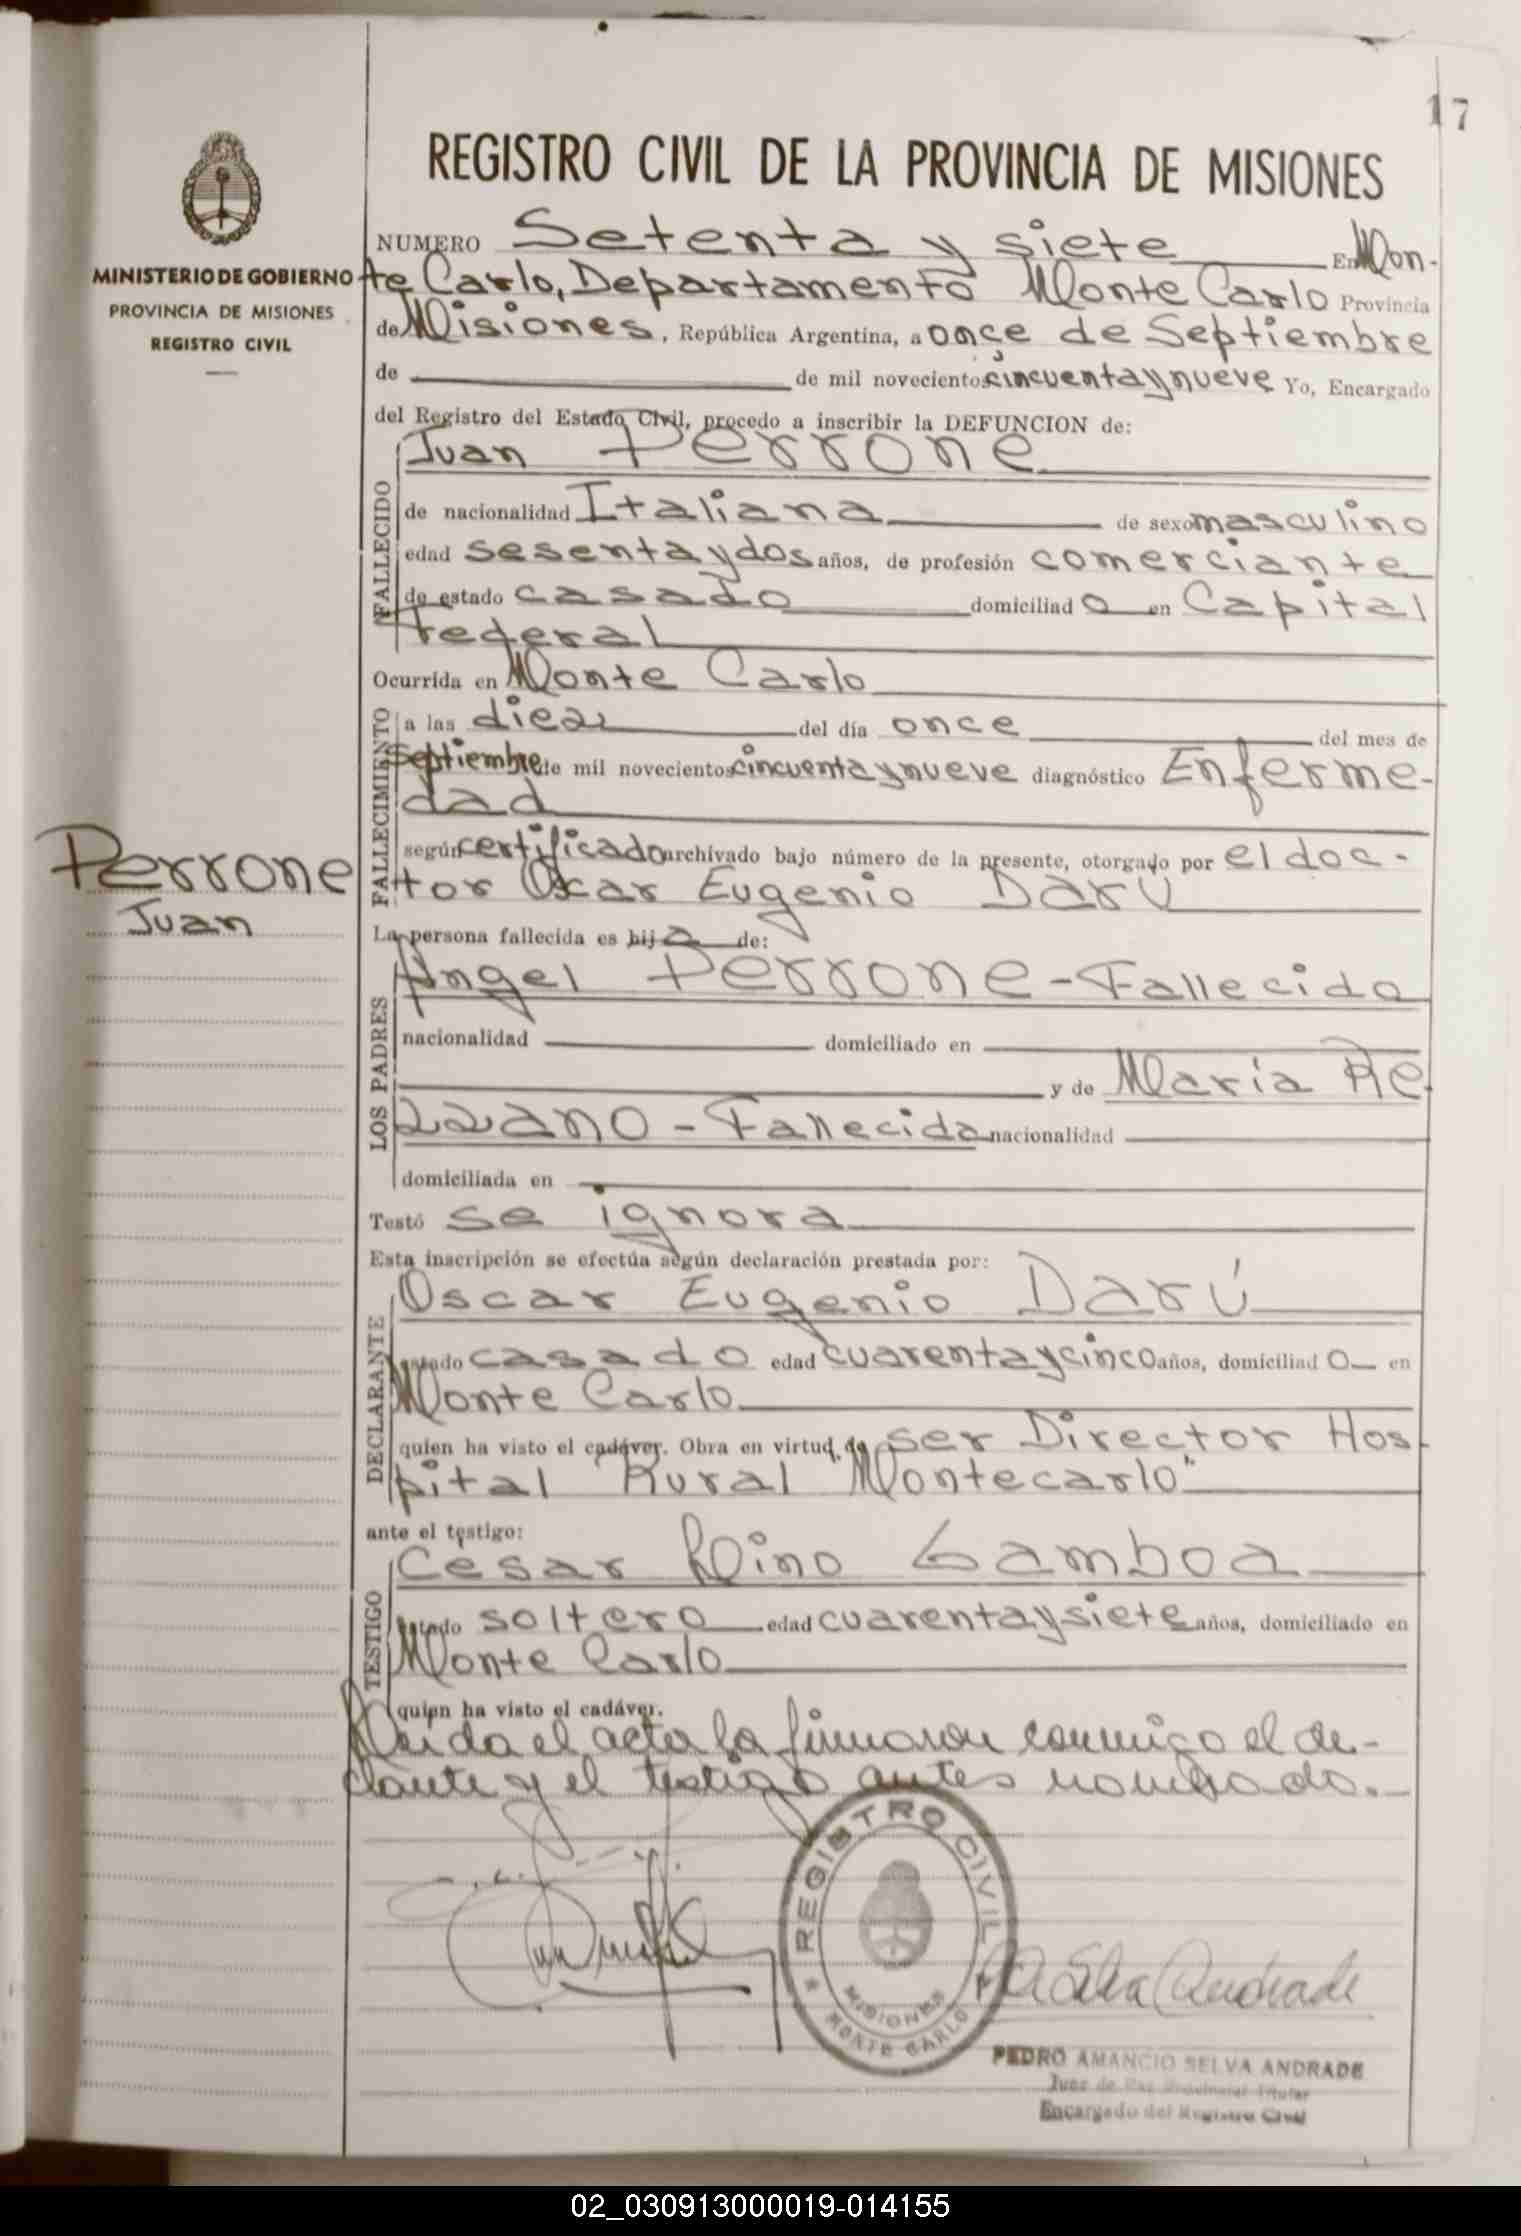 17
REGISTRO CIVIL DE LA PROVINCIA DE MISIONES
MINISTERIO DE GOBIERNO
PROVINCIA DE MISIONES
REGISTRO CIVIL
NUMERO Setenta y siete En Mon-
te Carlo, Departamento Monte Carlo Provincia
de Misiones, República Argentina, a once de Septiembre
de de mil novecientos cincuenta y nueve Yo, Encargado
del Registro del Estado Civil, procedo a inscribir la DEFUNCION de:
Juan Perrone
FALLECIDO
de nacionalidad Italiana de sexo masculino
edad sesenta y dos años, de profesión comerciante
de estado casado domiciliad o en Capital
Federal
Ocurrida en Monte Carlo
FALLECIMIENTO
a las diez del día once del mes de
Septiembre de mil novecientos cincuenta y nueve diagnóstico Enferme-
dad
según certificado archivado bajo número de la presente, otorgado por el doc-
tor Oscar Eugenio Darú
Perrone
Juan
La persona fallecida es hij o de:
LOS PADRES
Angel Perrone - Fallecido
nacionalidad domiciliado en
y de María Re
zzano - Fallecida nacionalidad
domiciliada en
Testó se ignora
Esta inscripción se efectúa según declaración prestada por:
DECLARANTE
Oscar Eugenio Darú
estado casado edad cuarenta y cinco años, domiciliad o en
Monte Carlo
quien ha visto el cadáver. Obra en virtud de ser Director Hos-
pital Rural "Montecarlo"
ante el testigo:
TESTIGO
Cesar Lino Gamboa
estado soltero edad cuarenta y siete años, domiciliado en
Monte Carlo
quien ha visto el cadáver.
Leida el acta la firmaron conmigo el de-
clante y el testigo antes nombrado.
REGISTRO CIVIL
MISIONES
MONTE CARLO
P A Selva Andrade
PEDRO AMANCIO SELVA ANDRADE
Juez de Paz Provincial Titular
Encargado del Registro Civil
02_030913000019-014155